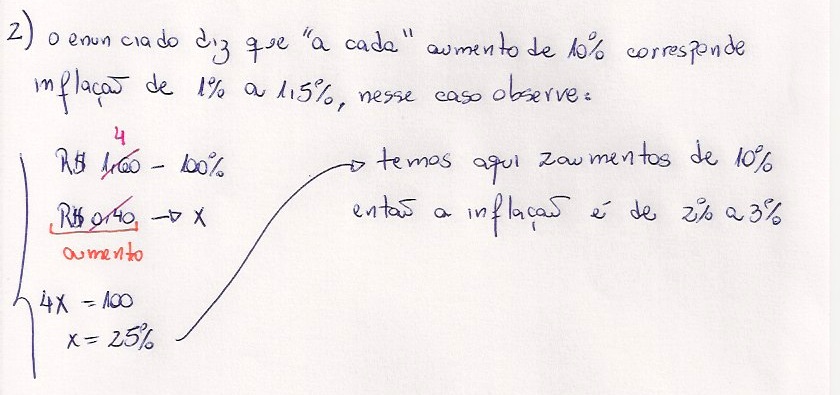 2) o enunciado diz que "a cada" aumento de 10% corresponde
inflação de 1% a 1,5%, nesse caso observe:
4
R$ 1,60 - 100%
R$ 0,40 → x
aumento
4x = 100
x = 25%
→ temos aqui 2 aumentos de 10%
então a inflação é de 2% a 3%